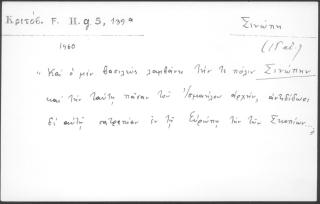 Κριτόβ. F. H. g. 5, 199ª Σινώπη
1460
"Καὶ ὁ μὲν βασιλεὺς λαμβάνει τήν τε πόλιν Σινώπην
καὶ τὴν ταύτῃ πᾶσαν τοῦ Ἰσμαήλου ἀρχήν, ἀντιδίδωσι
δὲ αὐτῷ σατραπείαν ἐν τῇ Εὐρώπῃ τὴν τῶν Σκοπίων